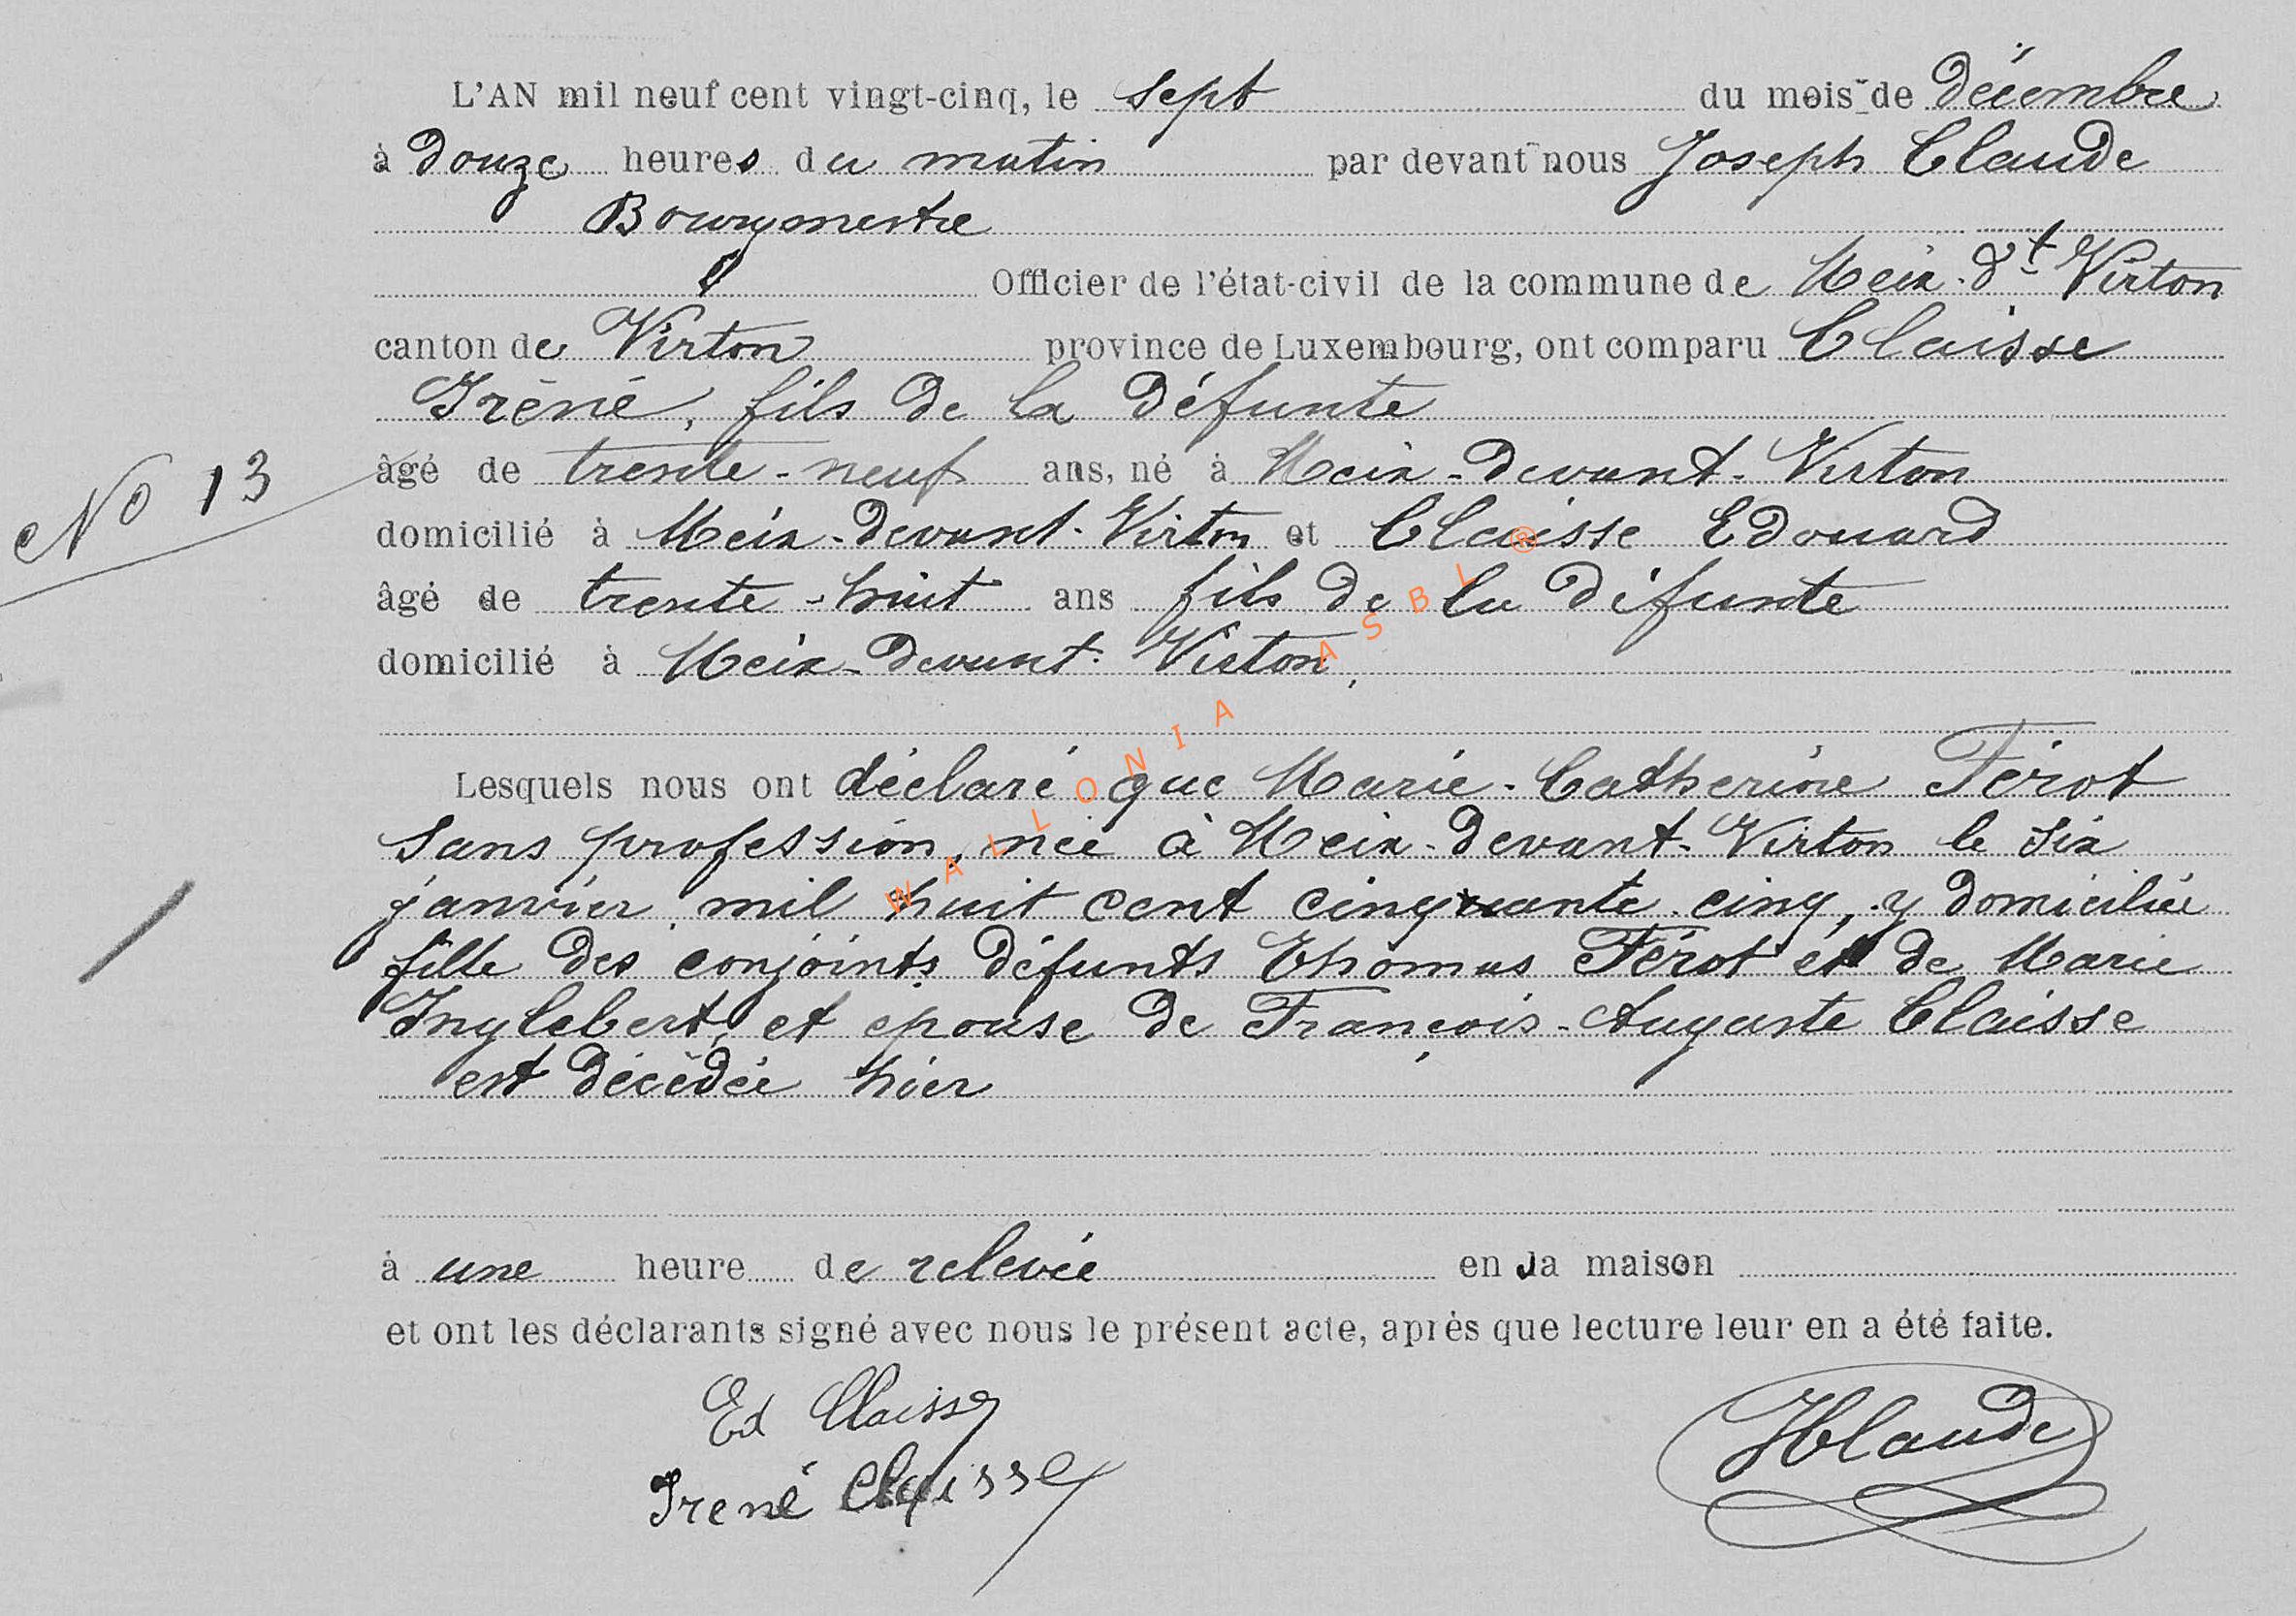 L'AN mil neuf cent vingt-cinq, le sept du mois de décembre
à douze heures du matin par devant nous Joseph Claude
Bourgmestre
Officier de l'état-civil de la commune de Meix-dt Virton
canton de Virton province de Luxembourg, ont comparu Claisse
Iréné, fils de la défunte
No 13
âgé de trente-neuf ans, né à Meix-devant-Virton
domicilié à Meix-devant-Virton et Claisse Edouard
âgé de trente-huit ans fils de la défunte
domicilié à Meix-devant-Virton,
Lesquels nous ont déclaré que Marie-Catherine Férot
sans profession, née à Meix-devant-Virton le six
janvier mil huit cent cinquante-cinq, y domiciliée
fille des conjoints défunts Thomas Férot et de Marie
Inglebert, et épouse de François-Auguste Claisse
est décédée hier
à une heure de relevée en sa maison
et ont les déclarants signé avec nous le présent acte, après que lecture leur en a été faite.
Ed Claisse
JClaude
Irené Claisse
WALLONIA ASBL ®